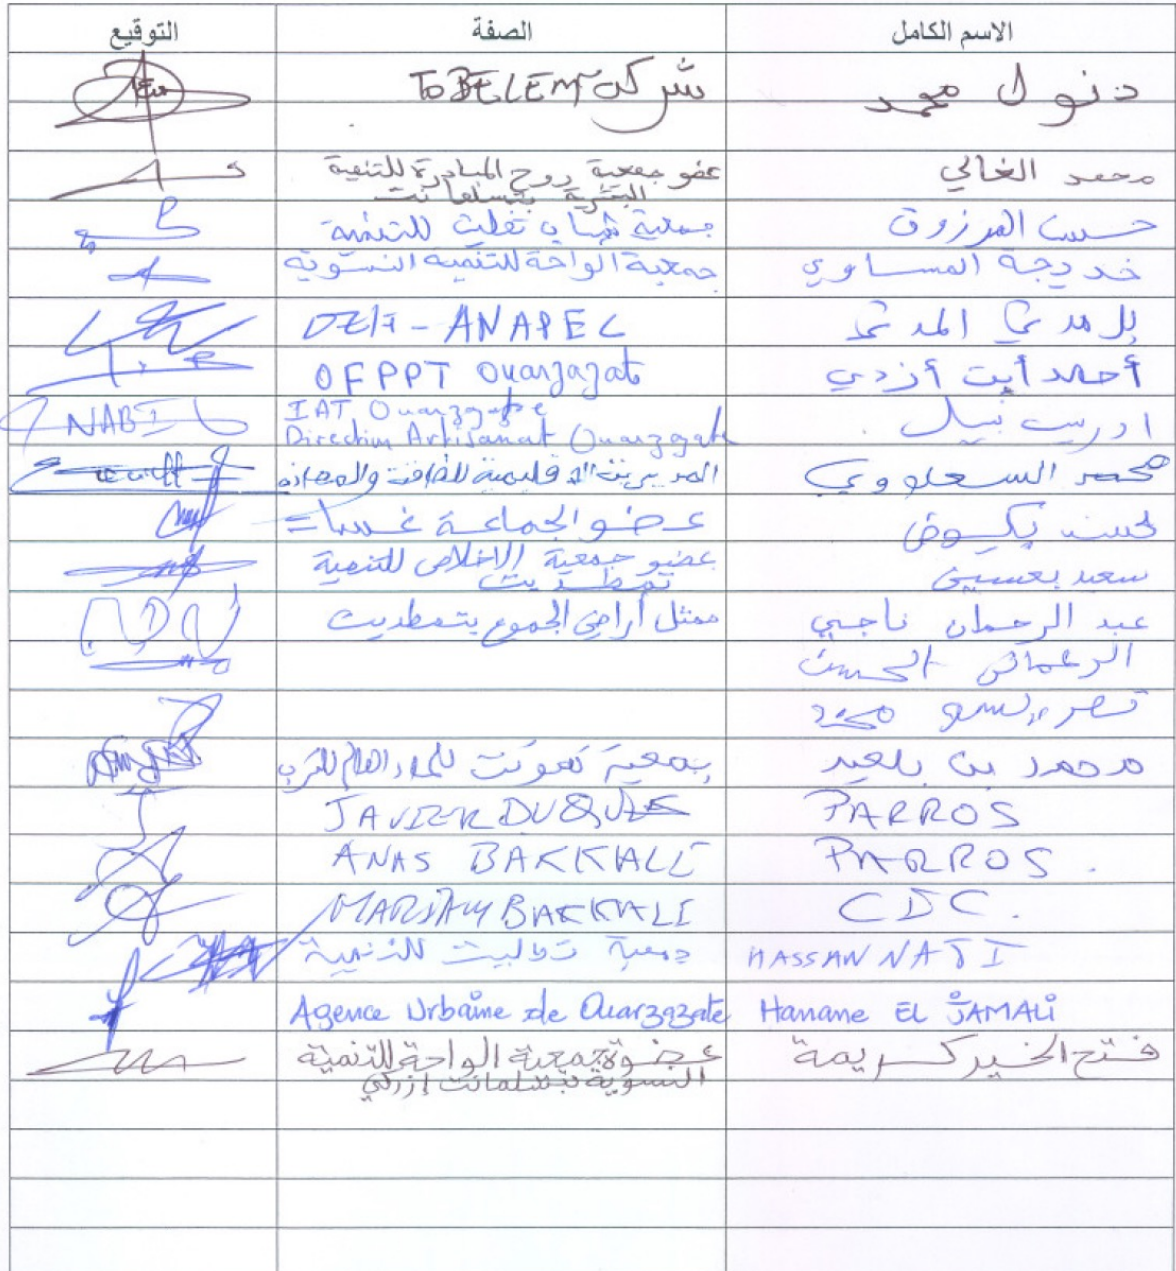 الاسم الكامل الصفة التوقيع
دنول محمد شركة TOBELEM
محمد الغالي عضو جمعية روح المبادرة للتنمية
البشرية بتسلمانت
حسن المرزوق جمعية شباب تفليت للتنمية
خديجة المساوي جمعية الواحة للتنمية النسوية
المدني ANAPEC
أحمد أيت أزدي OFPPT Ouarzazate
ادريس نبيل IAT Ouarzazate NABIL
Direction Artisanat Ouarzazate
محمد السعلووي المديرية الاقليمية للطاقة والمعادن
لحسن بكسوض عضو الجماعة غسات
سعيد بعسين عضو جمعية الاخلاص للتنمية
تمطديت
عبد الرحمان ناجي ممثل أراضي الجموع بتمطديت
الحسن
محمد
محمد بن بلعيد جمعية للماء
PARROS JAVIER DUQUE
PARROS. ANAS BAKKALI
CDC. MARIAM BAKKALI
HASSAN NAJI جمعية للتنمية
Hanane EL JAMALI Agence Urbaine de Ouarzazate
فتح الخير كريمة عضوة جمعية الواحة للتنمية
النسوية بتسلمانت إزركي